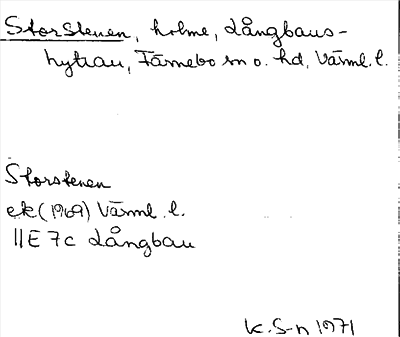 Storstenen, holme, Långbans-
hyttan, Färnebo sn o. hd, Värml. l.
Storstenen
ek (1969) Värml. l.
11E 7c Långban
K. S-n 1971